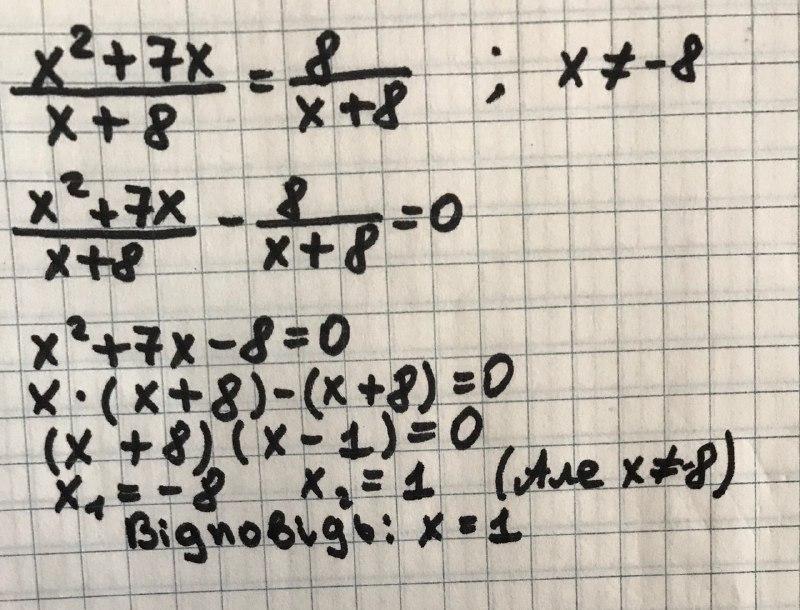 x²+7x/x+8 = 8/x+8 ; x≠-8
x²+7x/x+8 - 8/x+8 =0
x²+7x-8=0
x·(x+8)-(x+8)=0
(x+8)(x-1)=0
x₁=-8 x₂=1 (Але x≠-8)
Відповідь: x=1